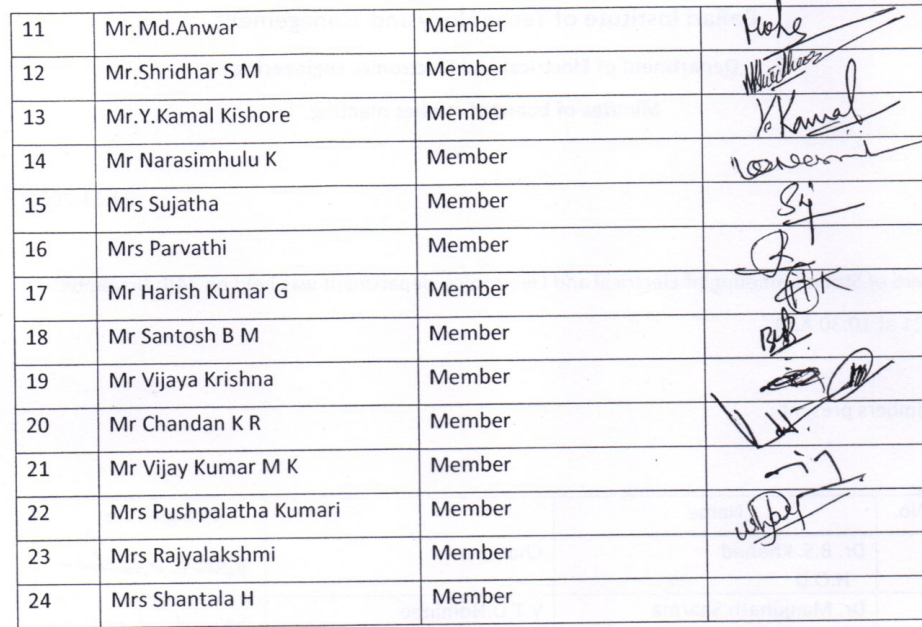 11 Mr.Md.Anwar Member
12 Mr.Shridhar S M Member
13 Mr.Y.Kamal Kishore Member Kamal
14 Mr Narasimhulu K Member
15 Mrs Sujatha Member
16 Mrs Parvathi Member
17 Mr Harish Kumar G Member
18 Mr Santosh B M Member
19 Mr Vijaya Krishna Member
20 Mr Chandan K R Member
21 Mr Vijay Kumar M K Member
22 Mrs Pushpalatha Kumari Member
23 Mrs Rajyalakshmi Member
24 Mrs Shantala H Member